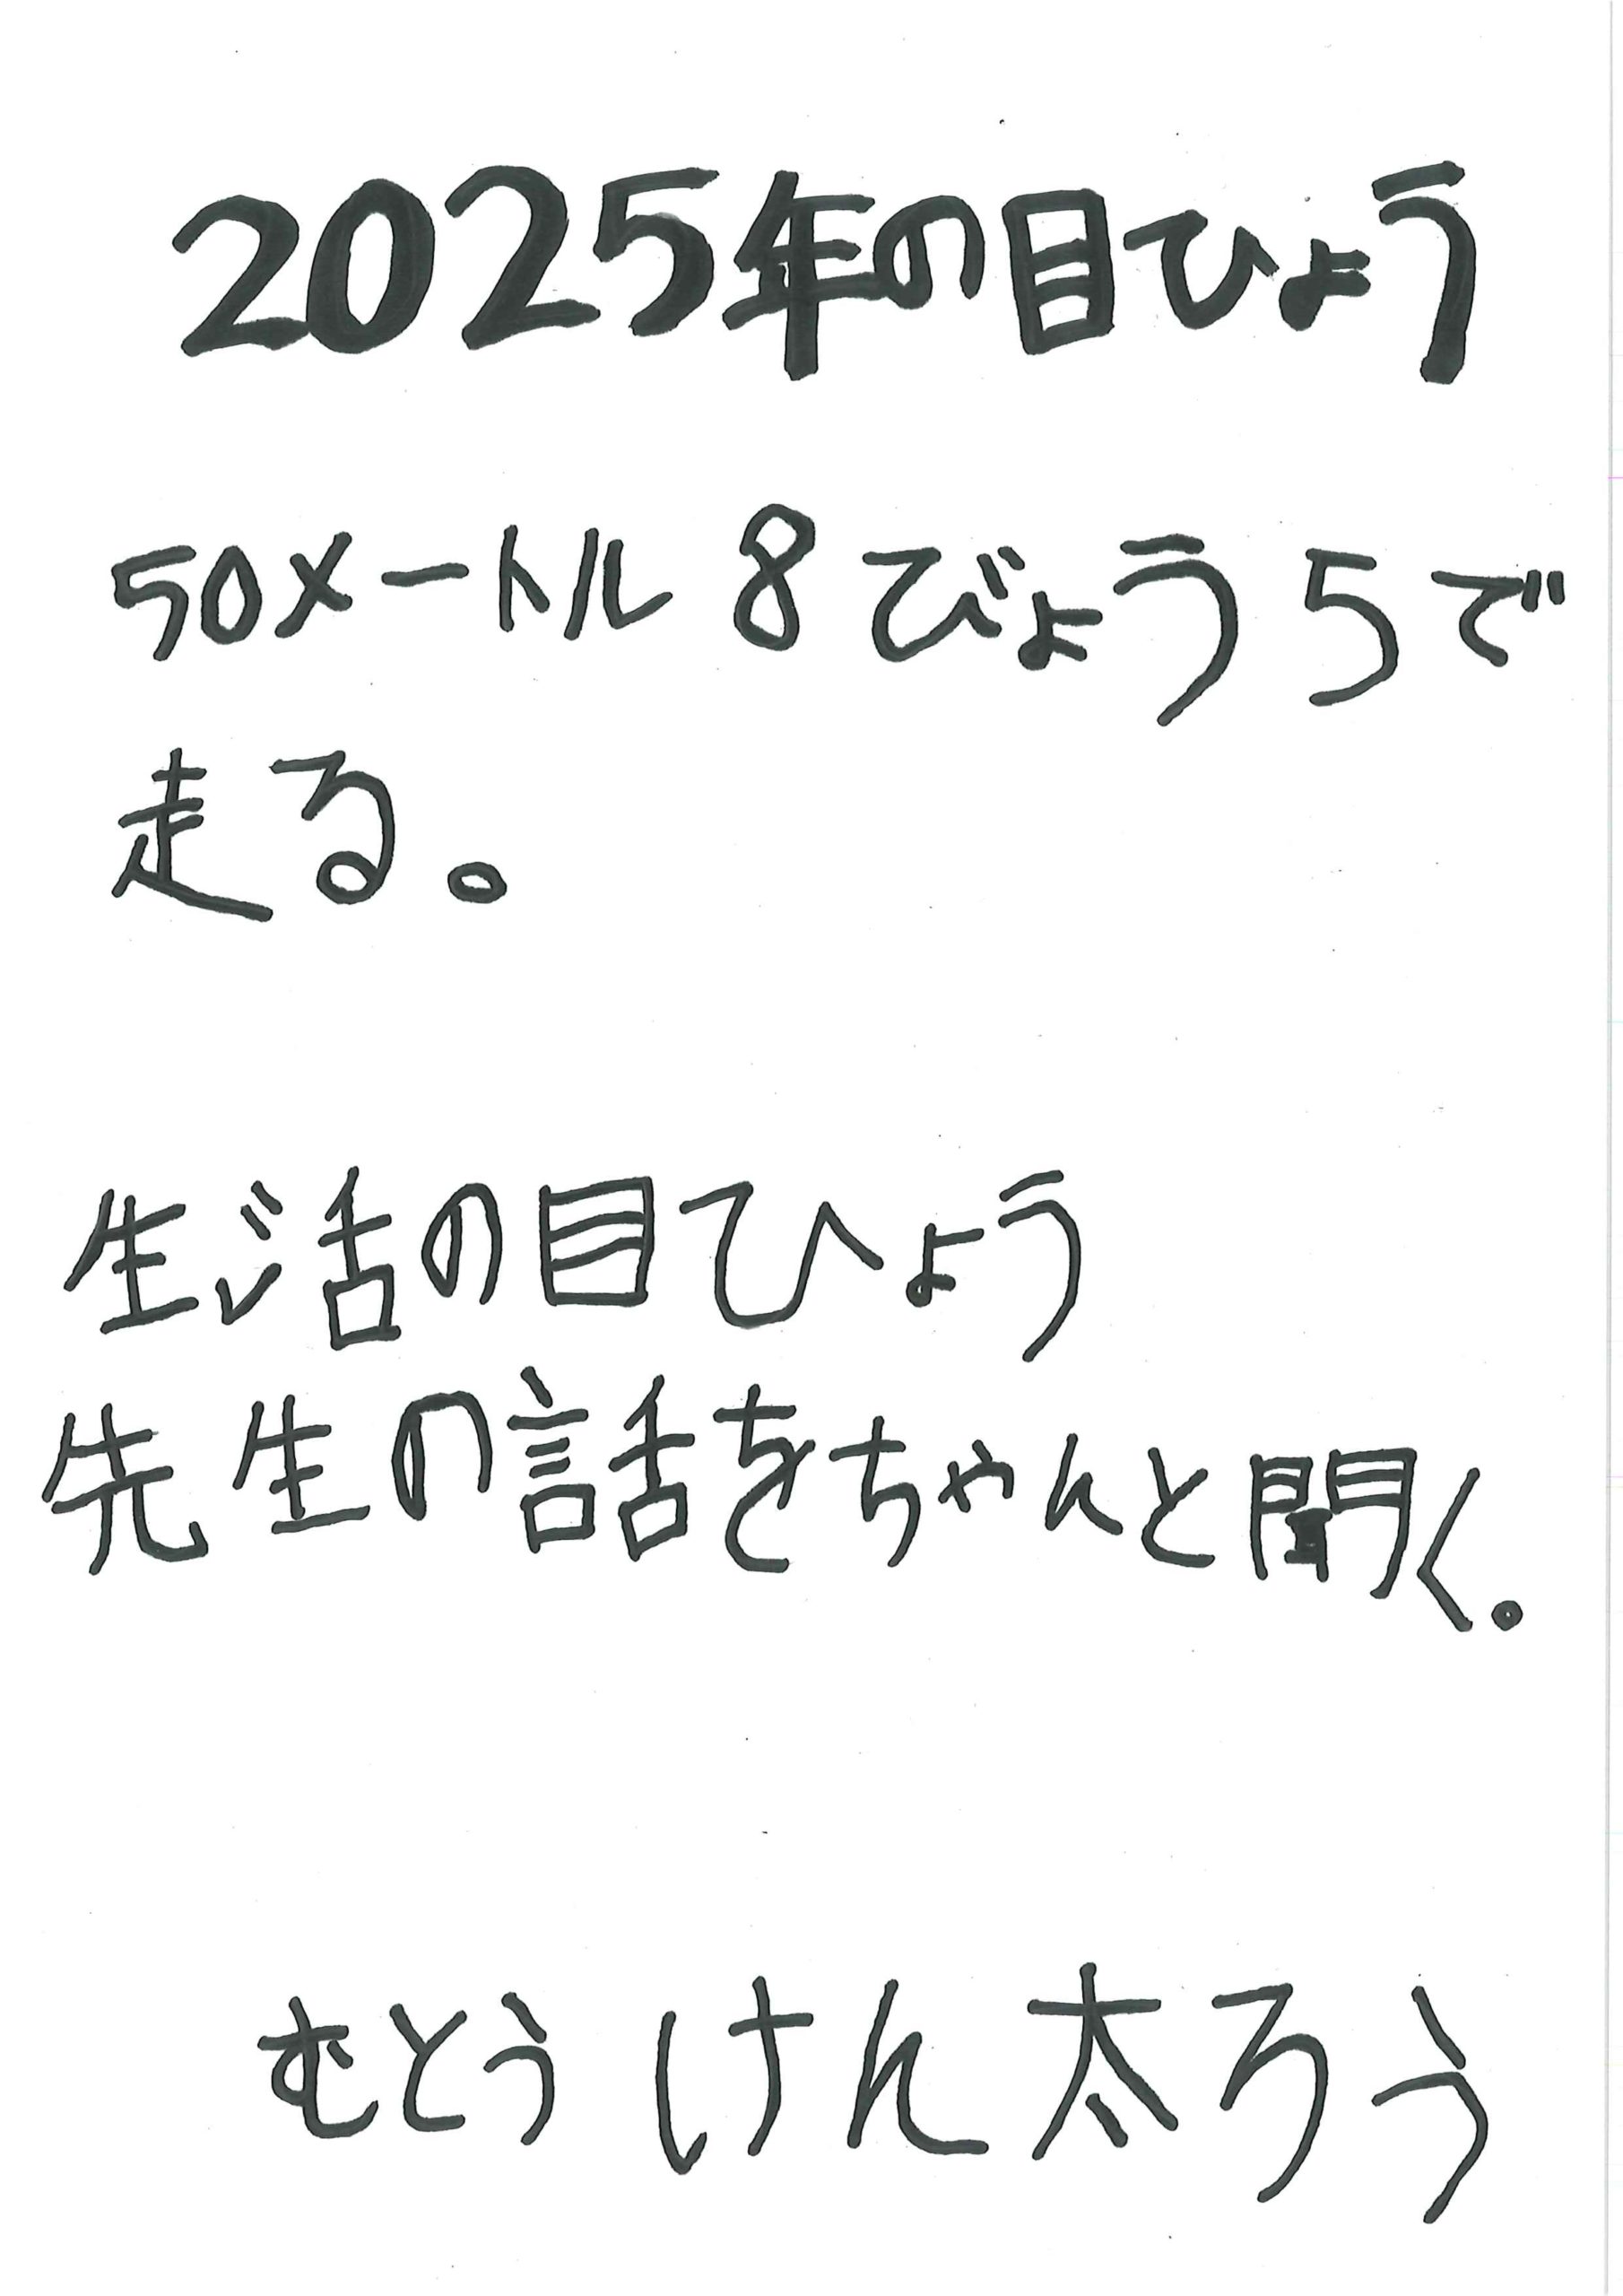 2025年の目ひょう
50メートル 8びょう5で
走る。
生活の目ひょう
先生の話をちゃんと聞く。
むとう けん太ろう